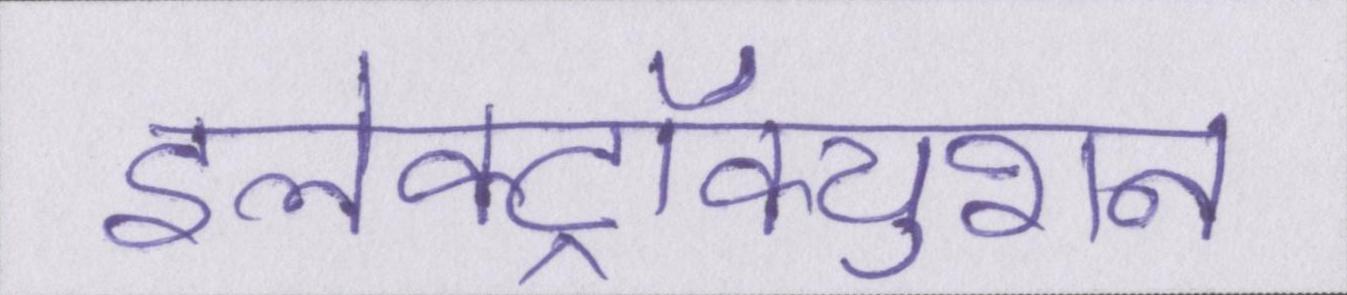 इलेक्ट्रॉक्युशन